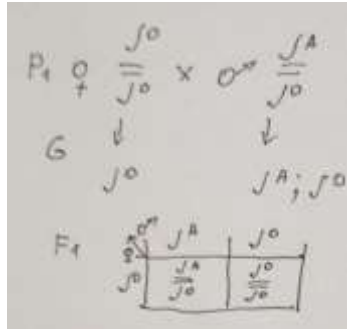 J⁰ J^A
P₁ ♀ = × ♂ =
J⁰ J⁰
G ↓ ↓
J⁰ J^A; J⁰
F₁ ♀ ♂ J^A J⁰
J⁰ J^A J⁰
= =
J⁰ J⁰